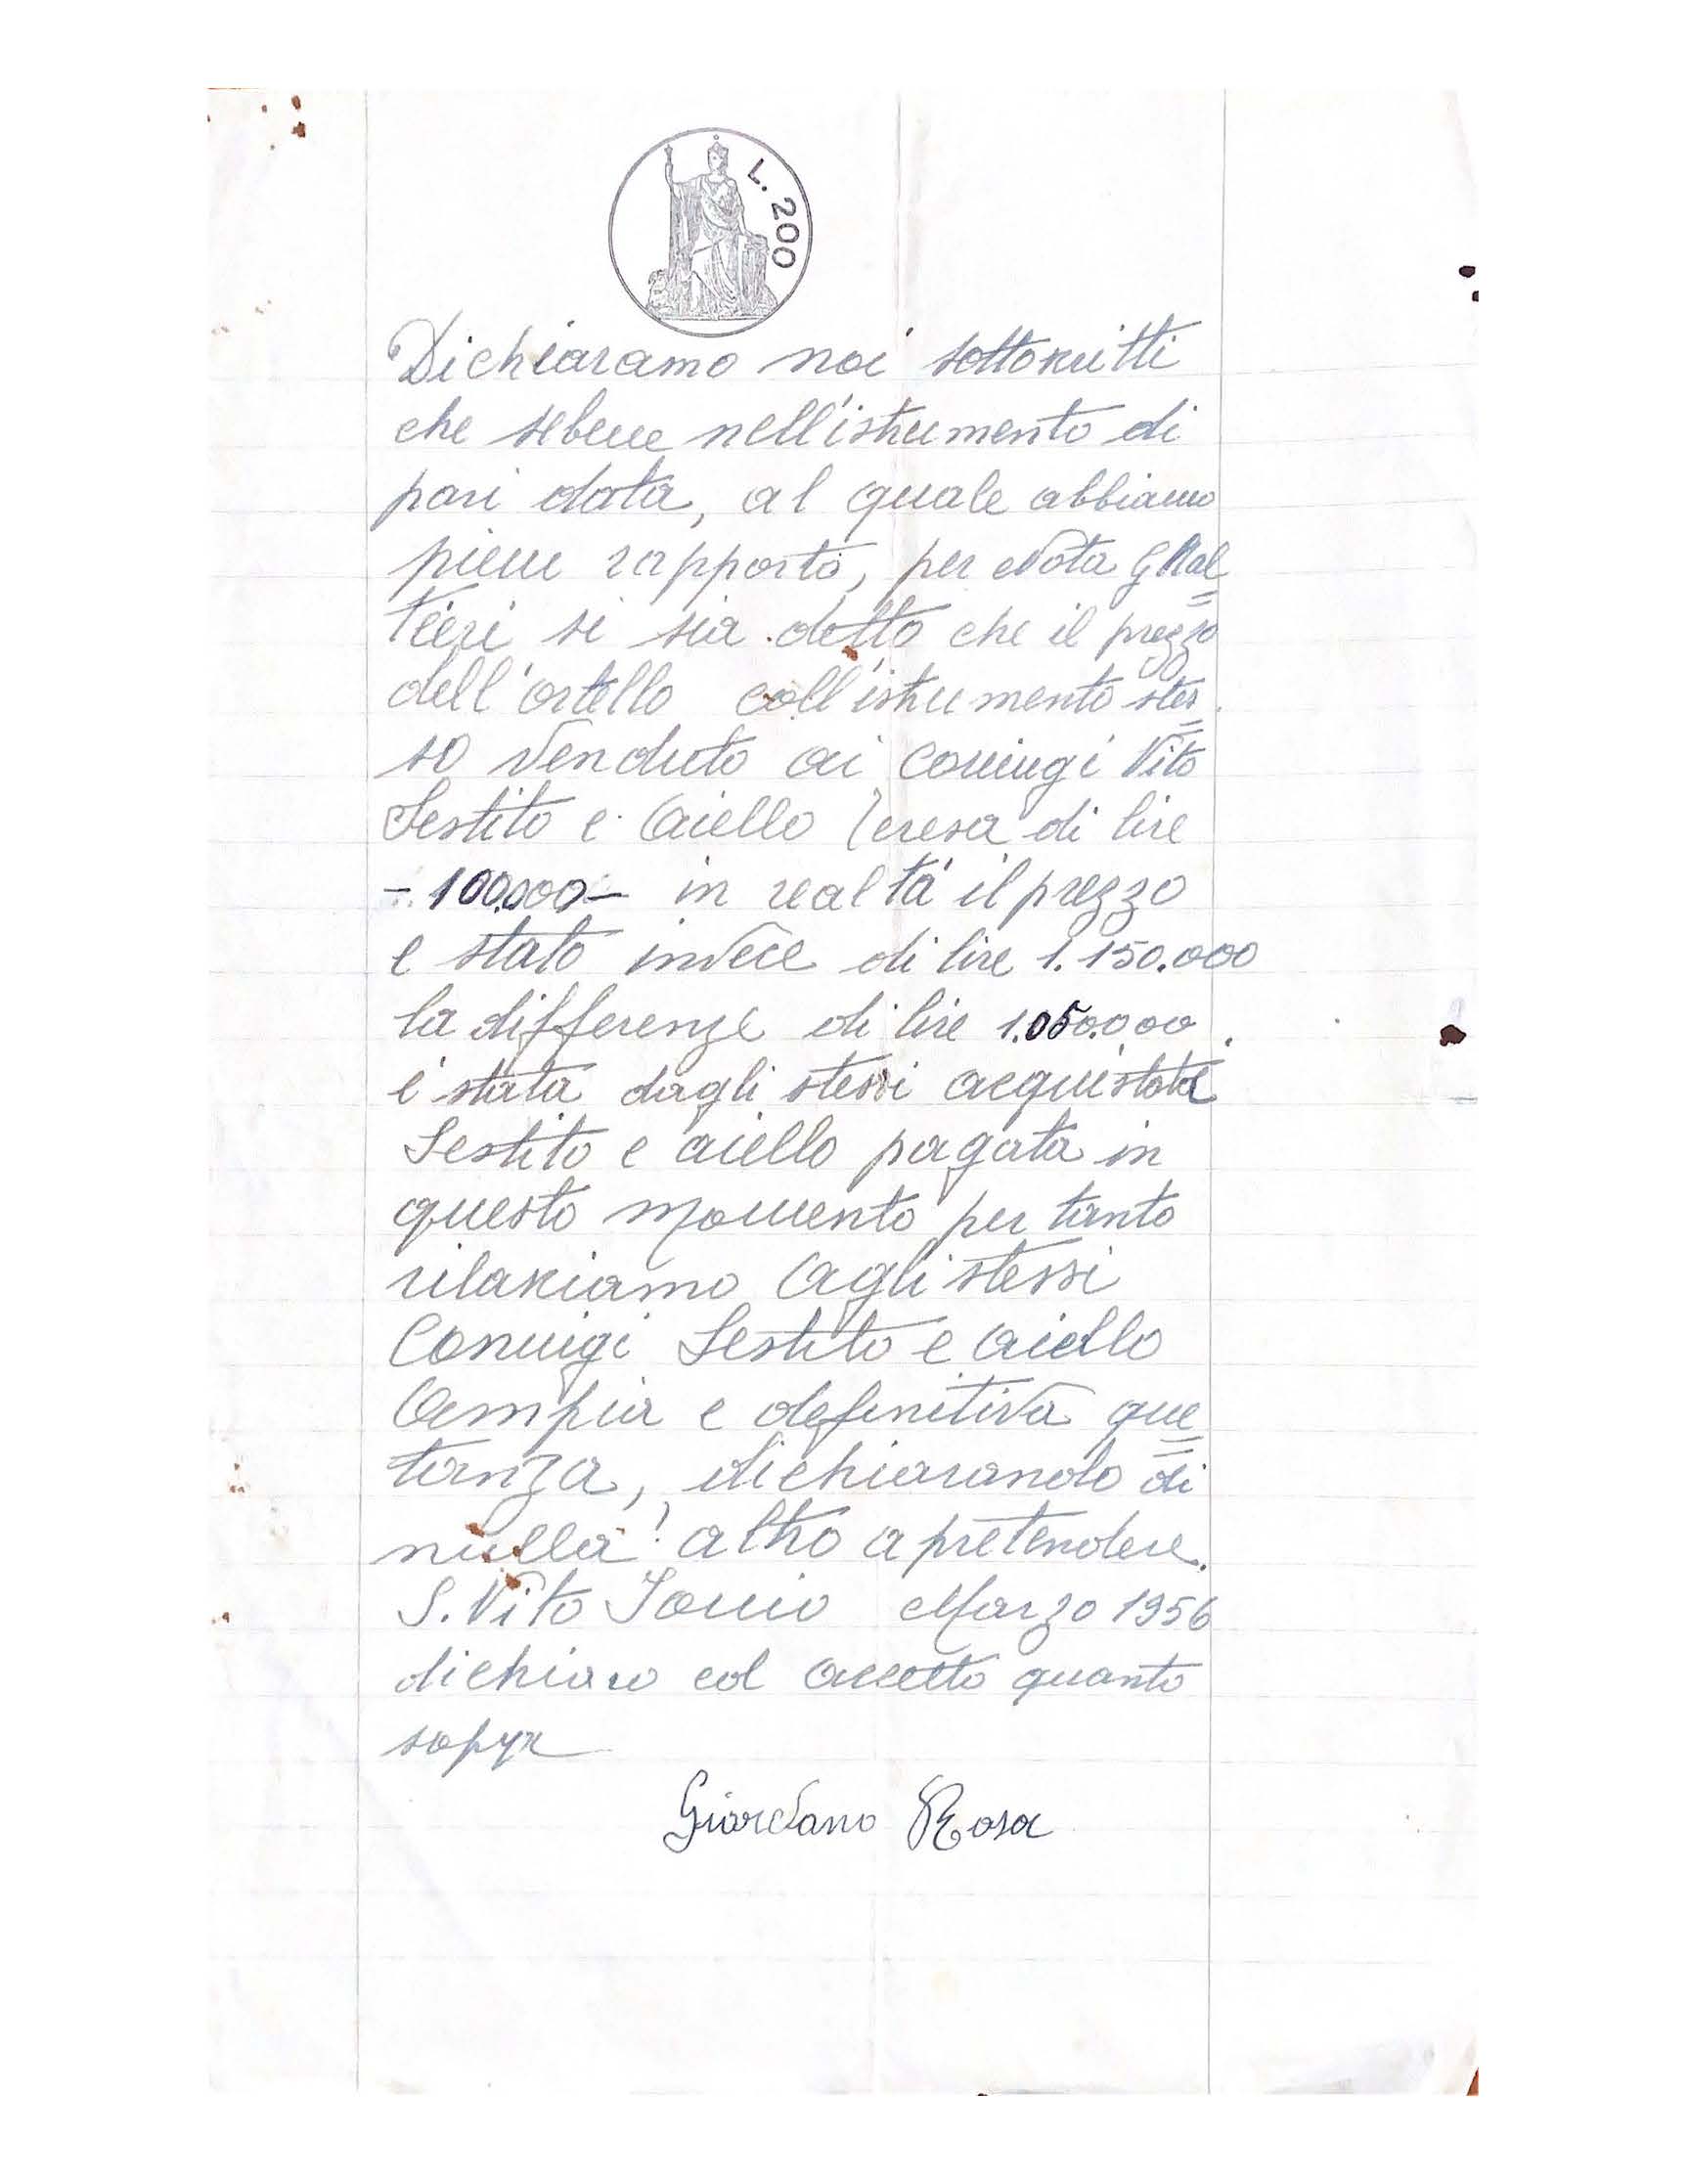 L. 200
Dichiaramo noi sottoscritti
che sebene nell'istrumento di
pari data, al quale abbiamo
pieno rapporto, per Nota Gual=
tieri si sia detto che il prezzo
dell'ortello coll'istrumento stes=
so venduto ai coniugi Vito
Sestito e Aiello Teresa di lire
- 100.000 - in realtá il prezzo
e stato invece di lire 1.150.000
la differenze di lire 1.050.000
é stata dagli stessi acquistati
Sestito e aiello pagata in
questo momento per tanto
rilasciamo agli stessi
Coniugi Sestito e aiello
Ampia e definitiva que=
tanza, dichiarando di
nulla altro a pretendere.
S. Vito Jonio Marzo 1956
dichiaro ed accetto quanto
sopra
Giordano Rosa